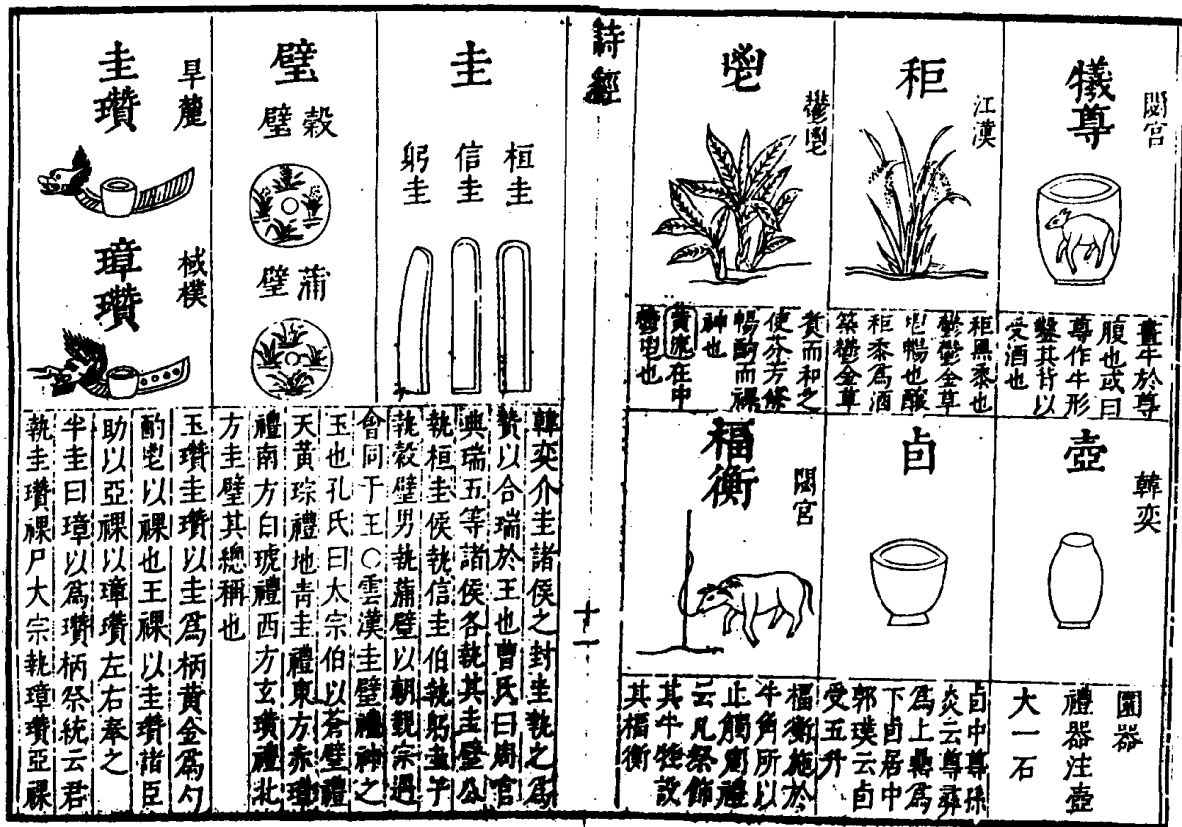 閟宮
犧尊
畫牛於尊
腹也或曰
尊作牛形
鑿其背以
受酒也
江漢
秬
秬黑黍也
鬱鬱金草
鬯暢也釀
秬黍爲酒
築鬱金草
鬱鬯
鬯
煑而和之
使芬芳條
暢酌而祼
神也
黃流在中
鬱鬯也
韓奕
壺
圜器
禮器注壺
大一石
卣
卣中尊孫
炎云尊彛
爲上罍爲
下卣居中
郭璞云卣
受五升
閟宮
楅衡
楅衡施於
牛角所以
止觸周禮
云凡祭飾
其牛牲設
其楅衡
詩經
十一
圭
桓圭
信圭
躬圭
韓奕介圭諸侯之封圭執之爲
贄以合瑞於王也曹氏曰周官
典瑞五等諸侯各執其圭璧公
執桓圭侯執信圭伯執躬圭子
執穀璧男執蒲璧以朝覲宗遇
會同于王○雲漢圭璧禮神之
玉也孔氏曰大宗伯以蒼璧禮
天黃琮禮地青圭禮東方赤璋
禮南方白琥禮西方玄璜禮北
方圭璧其總稱也
璧
穀璧
蒲璧
旱麓
圭瓚
棫樸
璋瓚
玉瓚圭瓚以圭爲柄黃金爲勺
酌鬯以祼也王祼以圭瓚諸臣
助以亞祼以璋瓚左右奉之
半圭曰璋以爲瓚柄祭統云君
執圭瓚祼尸大宗執璋瓚亞祼